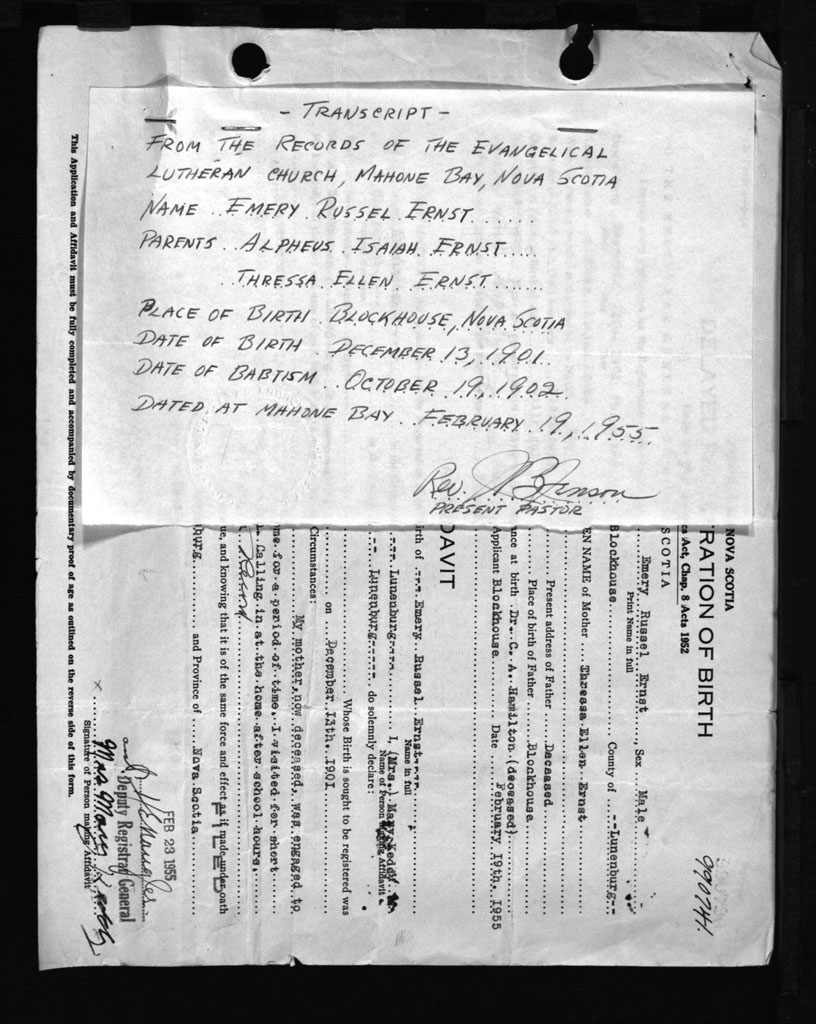 - TRANSCRIPT -
FROM THE RECORDS OF THE EVANGELICAL
LUTHERAN CHURCH, MAHONE BAY, NOVA SCOTIA
NAME .. EMERY RUSSEL ERNST ......
PARENTS .. ALPHEUS ISAIAH ERNST .....
.. THRESSA ELLEN ERNST .......
PLACE OF BIRTH . BLOCKHOUSE, NOVA SCOTIA
DATE OF BIRTH . DECEMBER 13, 1901.
DATE OF BABTISM .. OCTOBER 19, 1902.
DATED AT MAHONE BAY .. FEBRUARY 19, 1955.
Rev.
PRESENT PASTOR
990741.
NOVA SCOTIA
RATION OF BIRTH
s Act, Chap. 8 Acts 1952
SCOTIA
Emery Russel Ernst ...., Sex ... Male
Print Name in full
Blockhouse ........ County of ...--Lunenburg--
EN NAME of Mother ... Thressa Ellen Ernst
Present address of Father ... Deceased
Place of birth of Father ... Blockhouse
nce at birth Dr. C. A. Hamilton (deceased)
Applicant Blockhouse Date February 19th. 1955
DAVIT
irth of ---Emery Russel Ernst---
Name in full
--- Lunenburg--- I, (Mrs.) Mary
Name of Person making Affidavit
--- Lunenburg----- do solemnly declare:
Whose Birth is sought to be registered was
on ... December 13th. 1901
Circumstances:
My mother, now deceased, was engaged to
me for a period of time. I visited for short
Calling in at the home after school hours.
ue, and knowing that it is of the same force and effect as if made under oath
FILED
burg ........ and Province of ..... Nova Scotia
FEB 23 1955
Deputy Registrar General
and
Mrs Mary
Signature of Person making Affidavit
This Application and Affidavit must be fully completed and accompanied by documentary proof of age as outlined on the reverse side of this form.